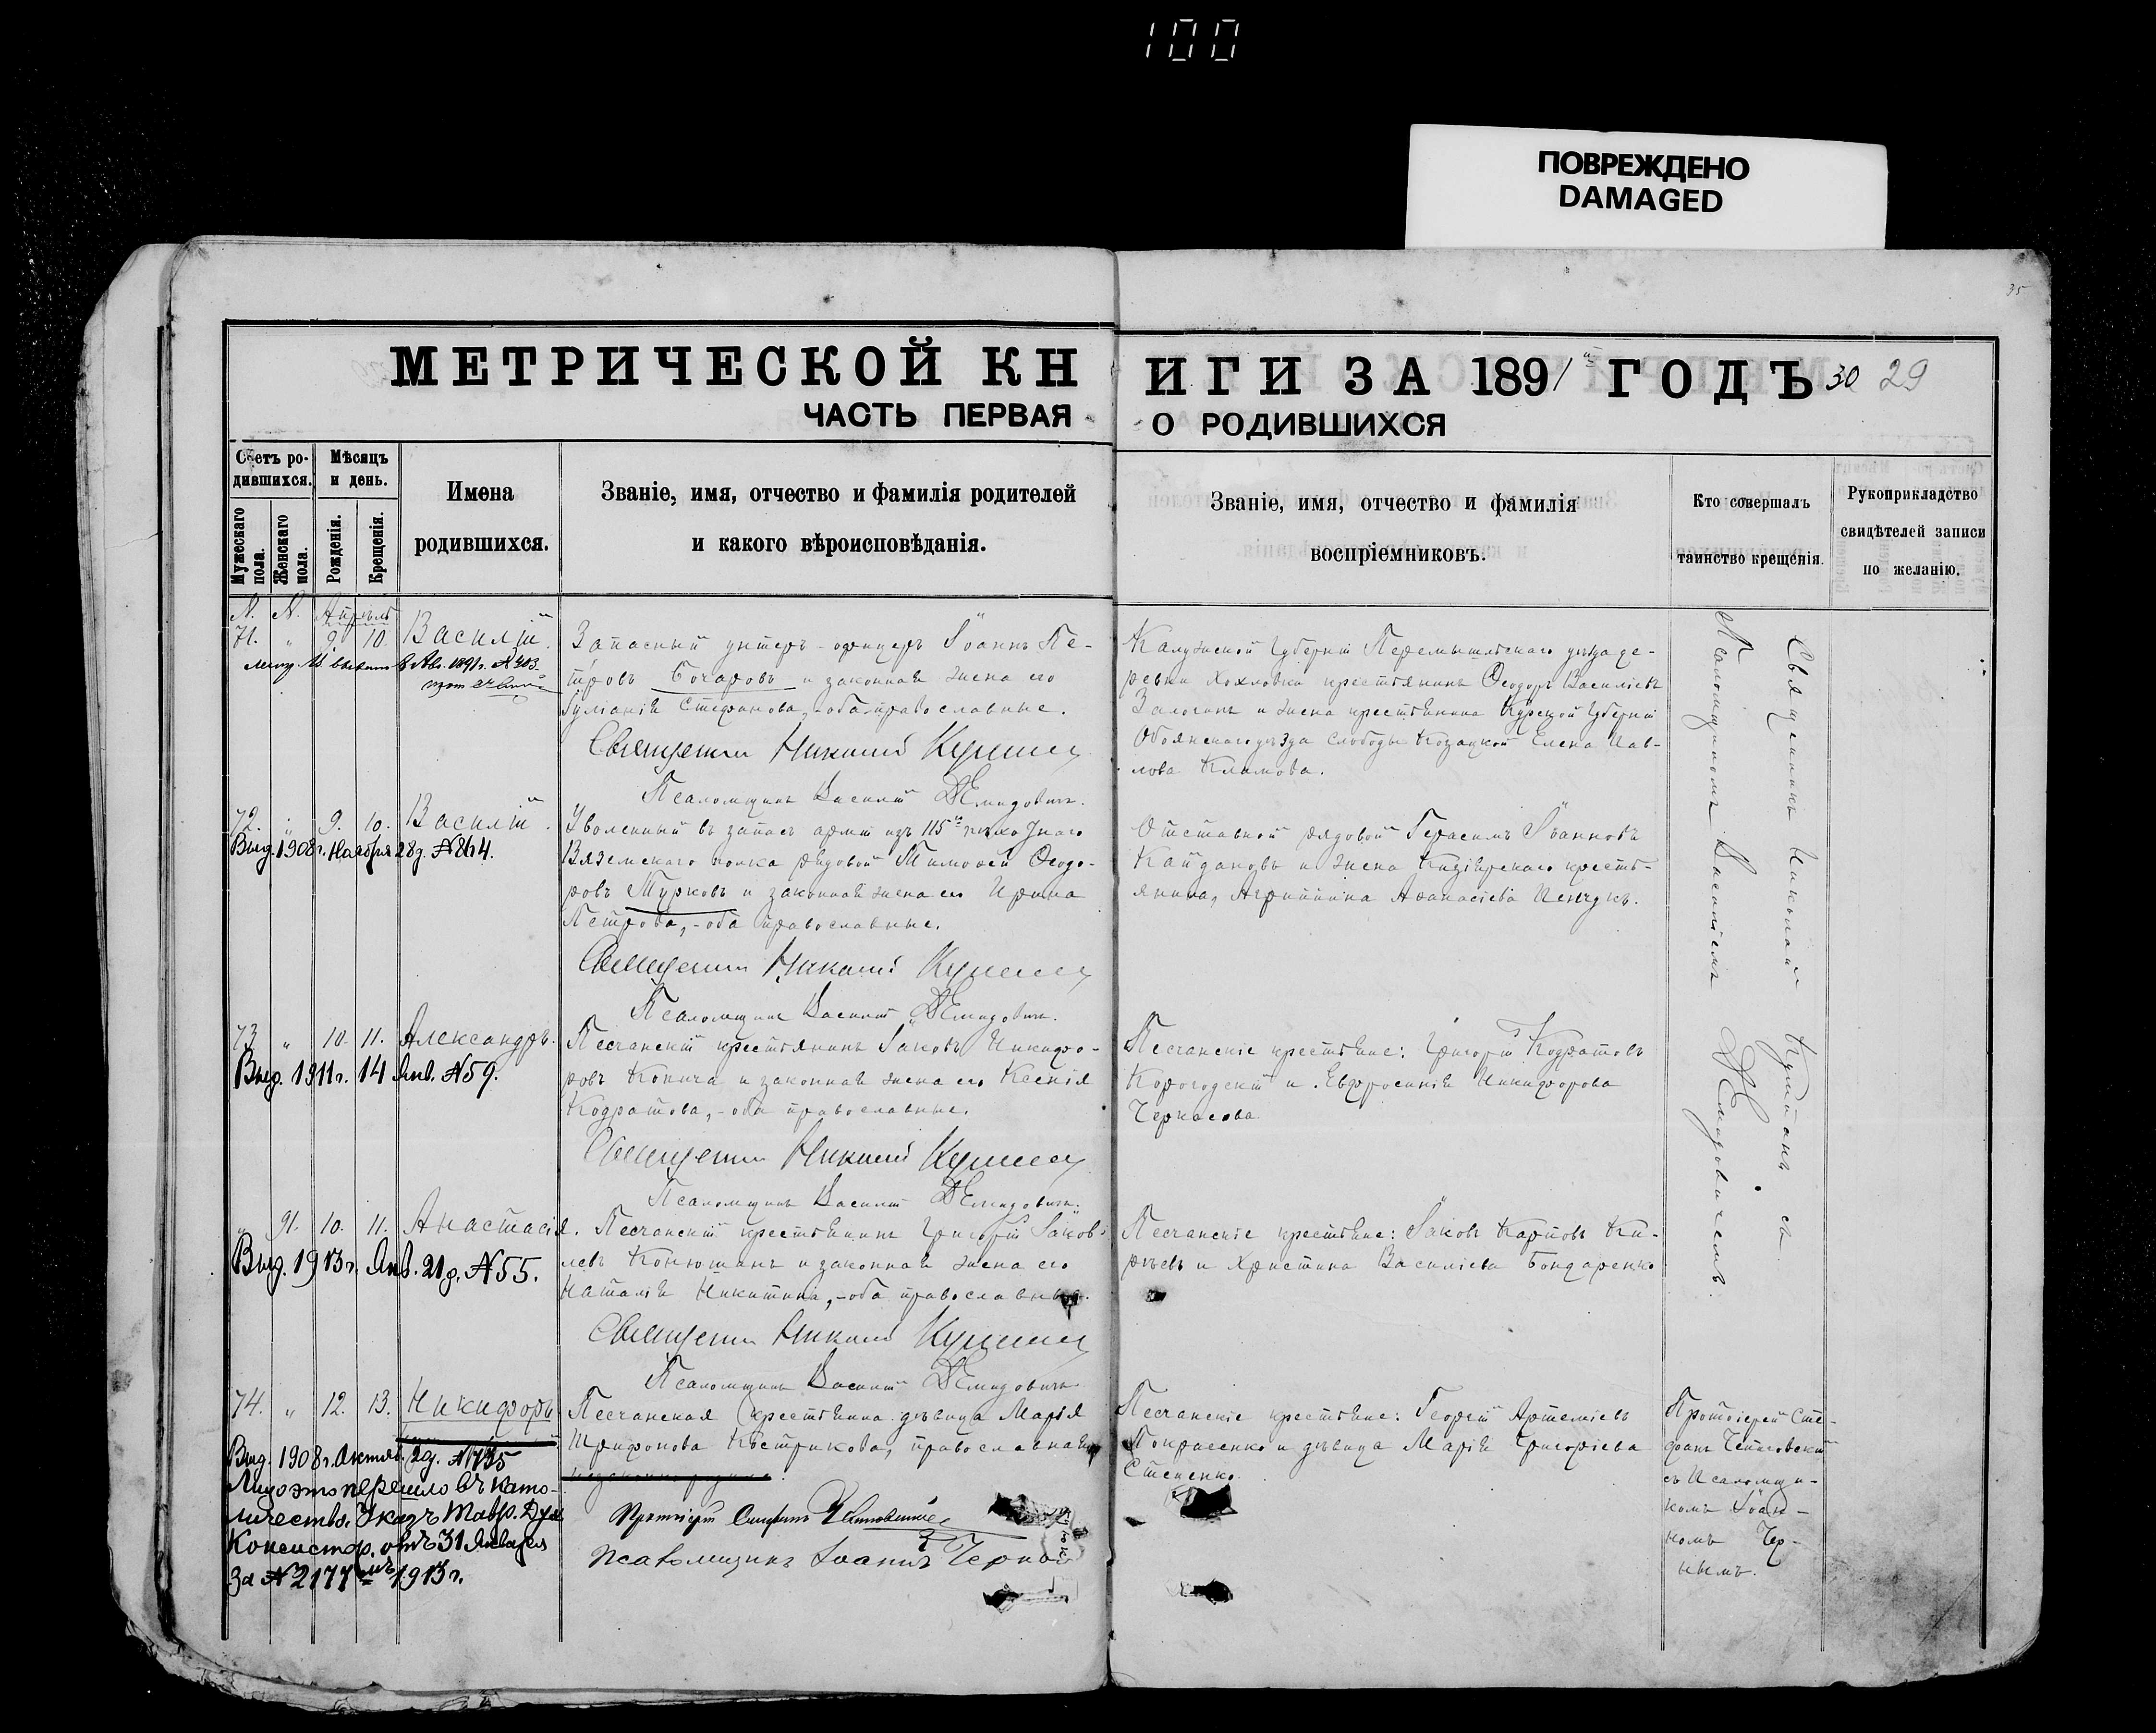 100
ПОВРЕЖДЕНО
DAMAGED
35
МЕТРИЧЕСКОЙ КНИГИ ЗА 1891й ГОДЪ 30 29
ЧАСТЬ ПЕРВАЯ О РОДИВШИХСЯ
Счетъ ро-
дившихся.
Мужескаго пола.
Женскаго пола.
Мѣсяцъ
и день.
Рожденія.
Крещенія.
Имена
родившихся.
Званіе, имя, отчество и фамилія родителей
и какого вѣроисповѣданія.
Званіе, имя, отчество и фамилія
воспріемниковъ.
Кто совершалъ
таинство крещенія.
Рукоприкладство
свидѣтелей записи
по желанію.
N. N. Апрѣль
71. " 9. 10. Василій.
1891г. №
Запасный унтеръ-офицеръ Іоаннъ Пе-
тровъ Бочаровъ и законная жена его
Іуліанія Стефанова, - оба православные.
Священникъ Николай
Псаломщикъ Василій Демидовичъ.
Калужской Губерніи Перемышльскаго уѣзда де-
ревни Хохловки крестьянинъ Ѳеодоръ Василіевъ
и жена крестьянина Курской Губерніи
Обоянскаго уѣзда Слободы Козацкой Елена Пав-
лова Климова.
72. " 9. 10. Василій.
Выд. 1908г. Ноября 28д. №
Уволенный въ запасъ арміи изъ 115го пѣхотнаго
Вяземскаго полка рядовой Тимоѳей Ѳеодо-
ровъ Турковъ и законная жена его Ирина
Петрова, - оба православные.
Священникъ Николай
Псаломщикъ Василій Демидовичъ.
Отставной рядовой Герасимъ Іоанновъ
Кайдановъ и жена крестъ-
янина, Агриппина Аѳанасіева
73 " 10. 11. Александръ.
Выд. 1911г. 14 Янв. №59.
Песчанскій крестьянинъ Іаковъ Никифо-
ровъ Конича и законная жена его Ксенія
Кодратова, - оба православные.
Священникъ Николай
Псаломщикъ Василій Демидовичъ.
Песчанскіе крестьяне: Григорій Кодратовъ
Корогодскій и Евфросинія Никифорова
Черкасова
" 91. 10. 11. Анастасія.
Выд. 1913г. Янв. 21д. №55.
Песчанскій крестьянинъ Григорій Іаков-
левъ Конюшанъ и законная жена его
Наталія Никитина, - оба православные.
Священникъ Николай
Псаломщикъ Василій Демидовичъ
Песчанскіе крестьяне: Іаковъ Карповъ Ки-
рѣевъ и Христина Василіева Бондаренко
74. " 12. 13. Никифоръ
Выд. 1908г. Октяб. 2д. №
Лицо это перешло въ като-
личество. Указъ Тавр. Дух.
Консистор. отъ 31 Января
За №2177мъ 1913г.
Песчанская крестьянка дѣвица Марія
Трифонова Кострикова, православная
Протоіерей Стефанъ
Псаломщикъ Іоаннъ Черный
Песчанскіе крестьяне: Георгій Артеміевъ
и дѣвица Марія Григоріева
Стеценко.
Священникъ Николай съ
Псаломщикомъ Василіемъ Демидовичемъ.
Протоіерей Сте-
фанъ
съ Псаломщи-
комъ Іоан-
номъ Чер-
нымъ.